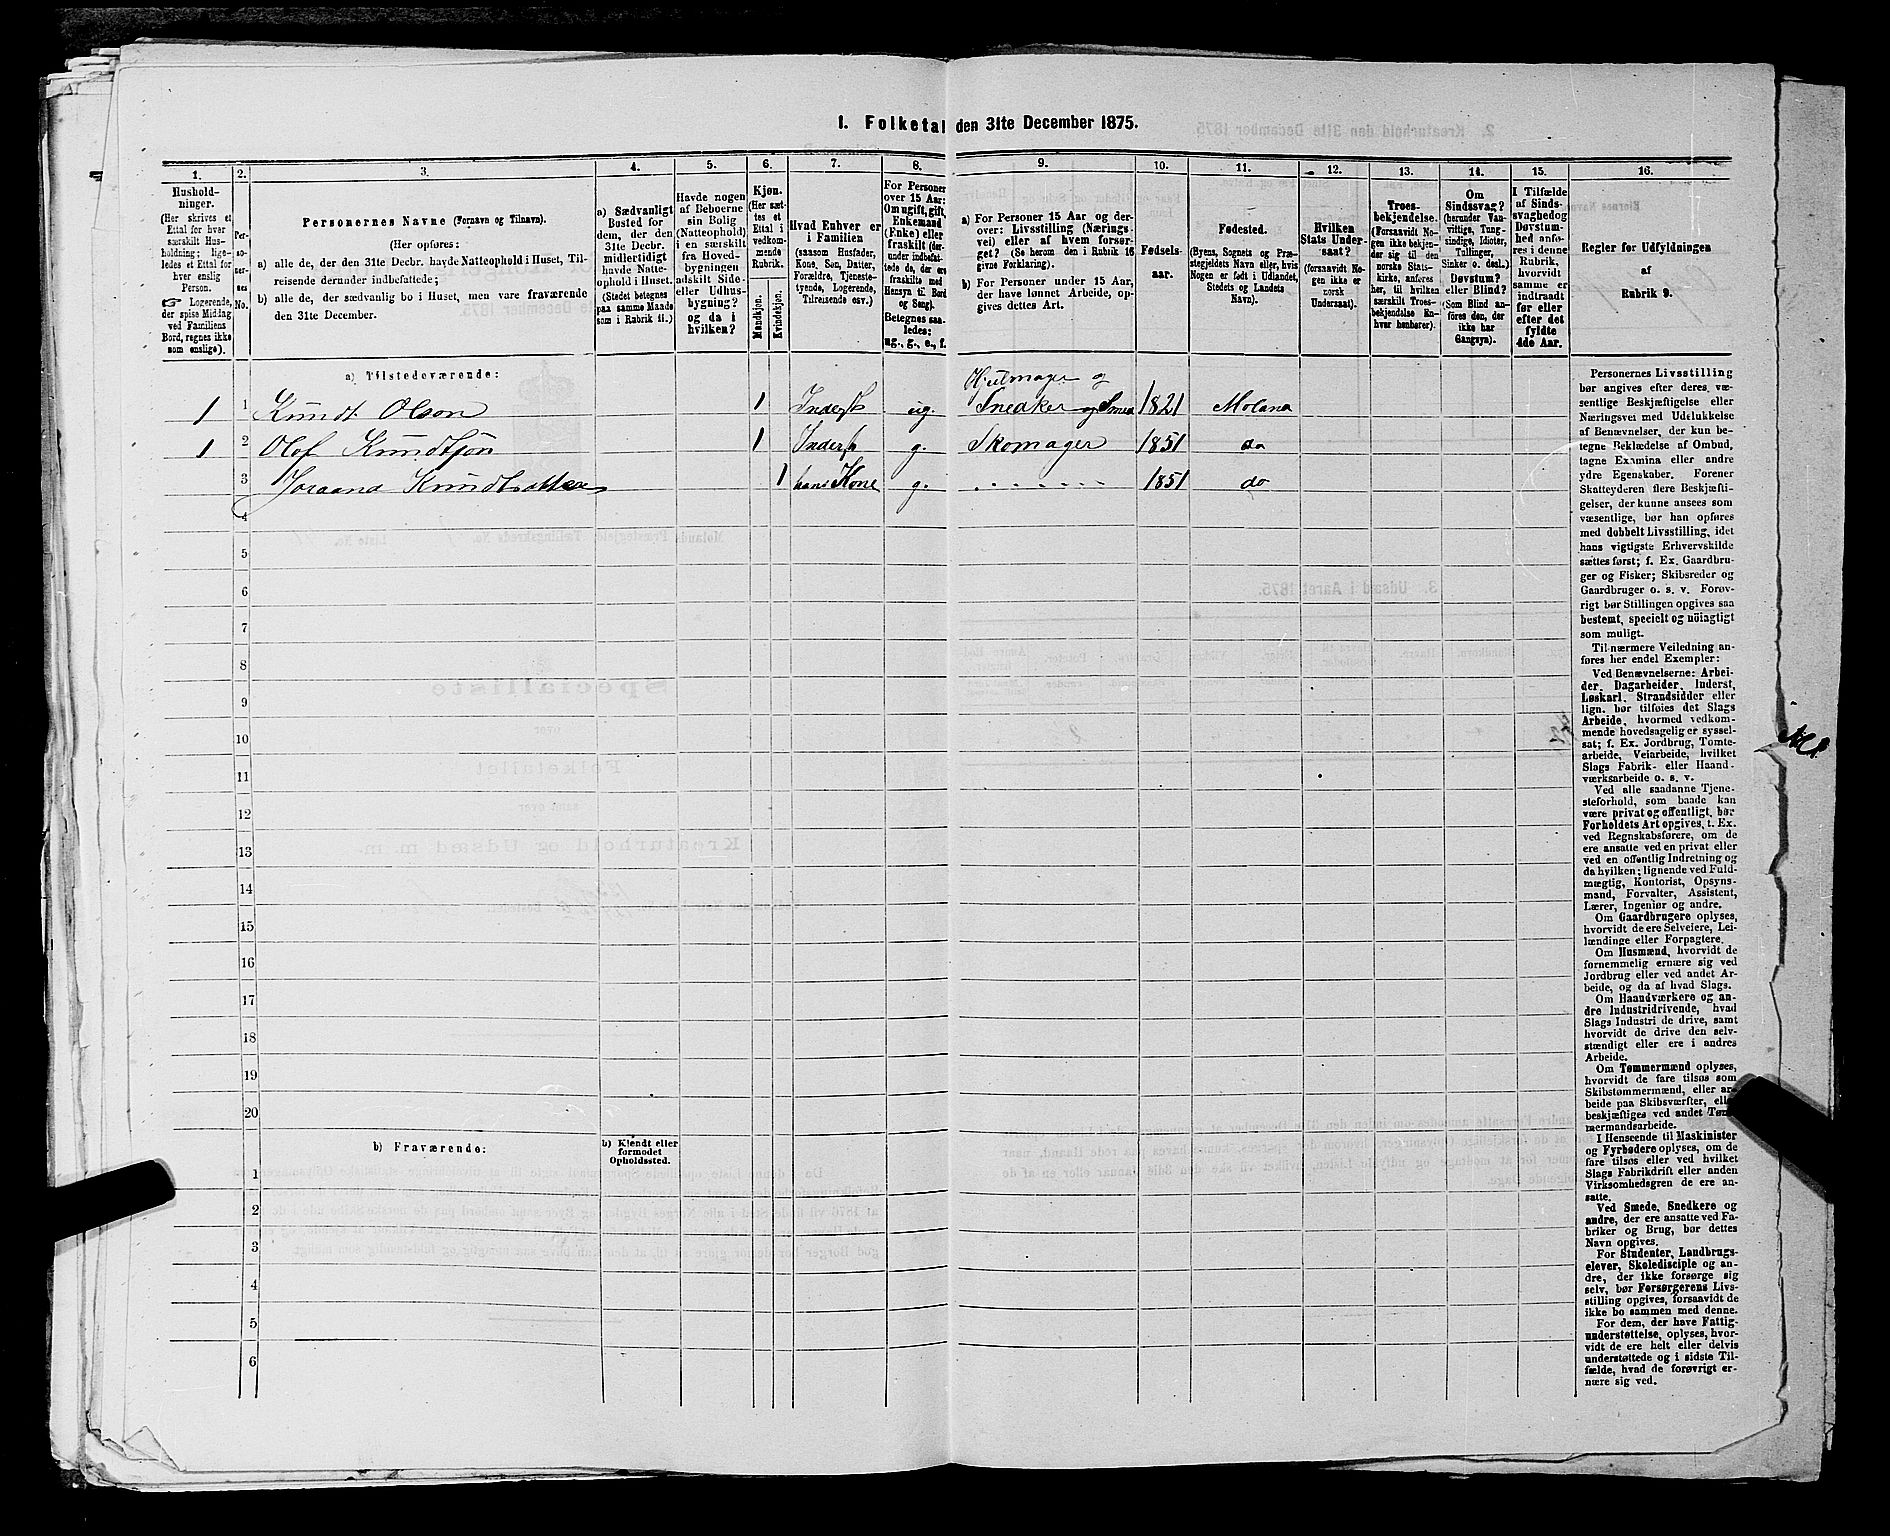 1. Folketal den 31te December 1875.
1. 2. 3. 4. 5. 6. 7. 8. 9. 10. 11. 12. 13. 14. 15. 16.
Hushold-
ninger.
(Her skrives et
Ettal for hver
særskilt Hus-
holdning; lige-
ledes et Ettal for
hver enslig
Person.
☞ Logerende,
der spise Middag
ved Familiens
Bord, regnes ikke
som enslige).
Per-
so-
ner-
nes
No.
Personernes Navne (Fornavn og Tilnavn).
(Her opføres:
a) alle de, der den 31te Decbr. havde Natteophold i Huset, Til-
reisende derunder indbefattede;
b) alle de, der sædvanlig bo i Huset, men vare fraværende
den 31te December.
a) Sædvanligt
Bosted for
dem, der den
31te Decbr.
midlertidigt
havde Natte-
ophold i Huset.
(Stedet betegnes
paa samme Maade
som i Rubrik 11.)
Havde nogen
af Beboerne
sin Bolig
(Natteophold)
i en særskilt
fra Hoved-
bygningen
adskilt Side-
eller Udhus-
bygning?
og da i
hvilken?
Kjøn.
(Her sæt-
tes et
Ettal i
vedkom-
mende
Rubrik.
Mandkjøn.
Kvindekjøn.
Hvad Enhver er
i Familien
(saasom Husfader,
Kone, Søn, Datter,
Forældre, Tjeneste-
tyende, Logerende,
Tilreisende osv.)
For Personer
over 15 Aar:
Om ugift, gift,
Enkemand
(Enke) eller
fraskilt (der-
under indbefat-
tede da, der ere
fraskilte med
Hensyn til Bord
og Seng).
Betegnes saa-
ledes:
ug., g., e., f.
a) For Personer 15 Aar og der-
over: Livsstilling (Nærings-
vei) eller af hvem forsør-
get? (Se herom den i Rubrik 16
givne Forklaring).
b) For Personer under 15 Aar,
der have lønnet Arbeide, op-
gives dettes Art.
Fødsels-
aar.
Fødested.
(Byens, Sognets og Præ-
stegjeldets Navn eller, hvis
Nogen er født i Udlandet,
Stedets og Landets
Navn).
Hvilken
Stats Under-
saat?
(forsaavidt No-
gen ikke er
norsk
Undersaat).
Troes-
bekjendelse.
(Forsaavidt No-
gen ikke bekjen-
der sig til den
norske Stats-
kirke, anføres
her, til hvilken
særskilt Troes-
bekjendelse En-
hver henhører).
Om
Sindssvag?
(herunder Van-
vittige, Tung-
sindige, Idioter,
Tullinger,
Sinker o. desl.)
Døvstum?
eller Blind?
(Som Blind an-
føres den, der
ikke har
Gangsyn).
I Tilfælde
af Sinds-
svaghed og
Døvstum-
hed anfø-
res i denne
Rubrik,
hvorvidt
samme er
indtraadt
før eller
efter det
fyldte
4de Aar.
Regler for Udfyldningen
af
Rubrik 9.
a) Tilstedeværende:
Hjulmager og
1 1 Knudt Olson 1 Inderst ug. Snedker og Smed 1821 Moland
1 2 Olof Knudtsøn 1 Inderst g. Skomager 1851 do
3 Joraand Knudtsdatter 1 hans Kone g. 1851 do
4
5
6
7
8
9
10
11
12
13
14
15
16
17
18
19
20
b) Fraværende:
b) Kjendt eller
formodet
Opholdssted.
1
2
3
4
5
6
Personernes Livsstilling
bør angives efter deres væ-
sentlige Beskjæftigelse eller
Næringsvei med Udelukkelse
af Benævnelser, der kun be-
tegne Beklædelse af Ombud,
tagne Examina eller andre
ydre Egenskaber. Forener
Skatteyderen flere Beskjæfti-
gelser, der kunne ansees som
væsentlige, bør han opføres
med dobbelt Livsstilling, idet
hans vigtigste Erhvervskilde
sættes først; f. Ex. Gaardbru-
ger og Fisker; Skibsreder og
Gaardbruger o. s. v. Forøv-
rigt bør Stillingen opgives saa
bestemt, specielt og nöiagtigt
som muligt.
Til nærmere Veiledning an-
føres her endel Exempler:
Ved Benævnelserne: Arbei-
der, Dagarbeider, Inderst,
Løskarl, Strandsidder eller
lign. bør tilføies det Slags
Arbeide, hvormed vedkom-
mende hovedsagelig er syssel-
sat; f. Ex. Jordbrug, Tomte-
arbeide, Veiarbeide, hvilket
Slags Fabrik- eller Haand-
værksarbeide o. s. v.
Ved alle saadanne Tjene-
steforhold, som baade kan
være privat og offentligt, bør
Forholdets Art opgives, t. Ex.
ved Regnskabsførere, om de
ere ansatte ved en privat eller
ved en offentlig Indretning og
da hvilken; lignende ved Fuld-
mægtig, Kontorist, Opsyns-
mand, Forvalter, Assistent,
Lærer, Ingeniør og andre.
Om Gaardbrugere oplyses,
hvorvidt de ere Selveiere, Lei-
lændinge eller Forpagtere.
Om Husmænd, hvorvidt de
fornemmelig ernære sig ved
Jordbrug eller ved andet Ar-
beide, og da af hvad Slags.
Om Haandværkere og an-
dre Industridrivende, hvad
Slags Industri de drive, samt
hvorvidt de drive den selv-
stændigt eller ere i andres
Arbeide.
Om Tømmermænd oplyses,
hvorvidt de fare tilsøs som
Skibstømmermænd, eller ar-
beide paa Skibsværfter, eller
beskjæftiges ved andet Tøm-
mermandsarbeide.
I Henseende til Maskinister
og Fyrbødere oplyses, om de
fare tilsøs eller ved hvilket
Slags Fabrikdrift eller anden
Virksomhedsgren de ere an-
satte.
Ved Smede, Snedkere og
andre, der ere ansatte ved Fa-
briker og Brug, bør dettes
Navn opgives.
For Studenter, Landbrugs-
elever, Skoledisciple og an-
dre, der ikke forsørge sig
selv, bør Forsørgerens Livs-
stilling opgives, forsaavidt de
ikke bo sammen med denne.
For dem, der have Fattig-
understøttelse, oplyses, hvor-
vidt de ere helt eller delvis
understøttede og i sidste Til-
fælde, hvad de forøvrigt er-
nære sig ved.